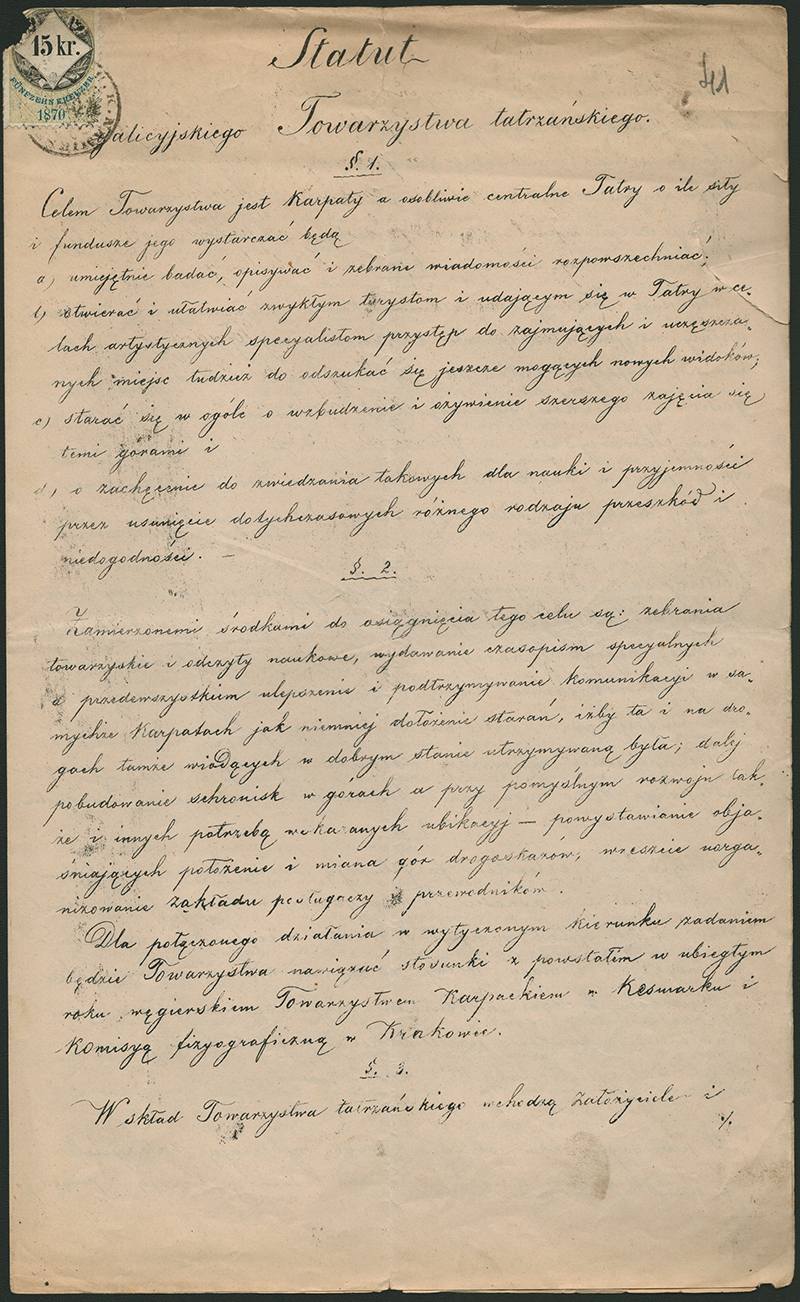 15 kr.
FÜNFZEHN KREUZER
1870
Statut
41
galicyjskiego Towarzystwa tatrzańskiego.
§. 1.
Celem Towarzystwa jest Karpaty a osobliwie centralne Tatry o ile siły
i fundusze jego wystarczać będą
a) umiejętnie badać, opisywać i zebrane wiadomości rozpowszechniać;
b) otwierać i ułatwiać zwykłym turystom i udającym się w Tatry w ce-
lach artystycznych specyalistom przystęp do zajmujących i uczęszcza-
nych miejsc tudzież do odszukać się jeszcze mogących nowych widoków;
c) starać się w ogóle o wzbudzenie i ożywienie szerszego zajęcia się
temi górami i
d) o zachęcenie do zwiedzania takowych dla nauki i przyjemności
przez usunięcie dotychczasowych różnego rodzaju przeszkód i
niedogodności. —
§. 2.
Zamierzonemi środkami do osiągnięcia tego celu są: zebrania
towarzyskie i odczyty naukowe, wydawanie czasopism specyalnych
a przedewszystkiem ulepszenie i podtrzymywanie komunikacyi w sa-
mychże Karpatach jak niemniej dołożenie starań, iżby ta i na dro-
gach tamże wiodących w dobrym stanie utrzymywaną była; dalej
pobudowanie schronisk w gorach a przy pomyślnym rozwoju tak-
że i innych potrzebą wskazanych ubikacyj — powystawianie obja-
śniających położenie i miana gór drogoskazów, wreszcie uorga-
nizowanie zakładu posługaczy i przewodników.
Dla połączonego działania w wytyczonym kierunku zadaniem
będzie Towarzystwa nawiązać stosunki z powstałem w ubiegłym
roku węgierskiem Towarzystwem Karpackiem w Kesmarku i
Komisyą fizyograficzną w Krakowie.
§. 3.
W skład Towarzystwa tatrzańskiego wchodzą Założyciele i
./.